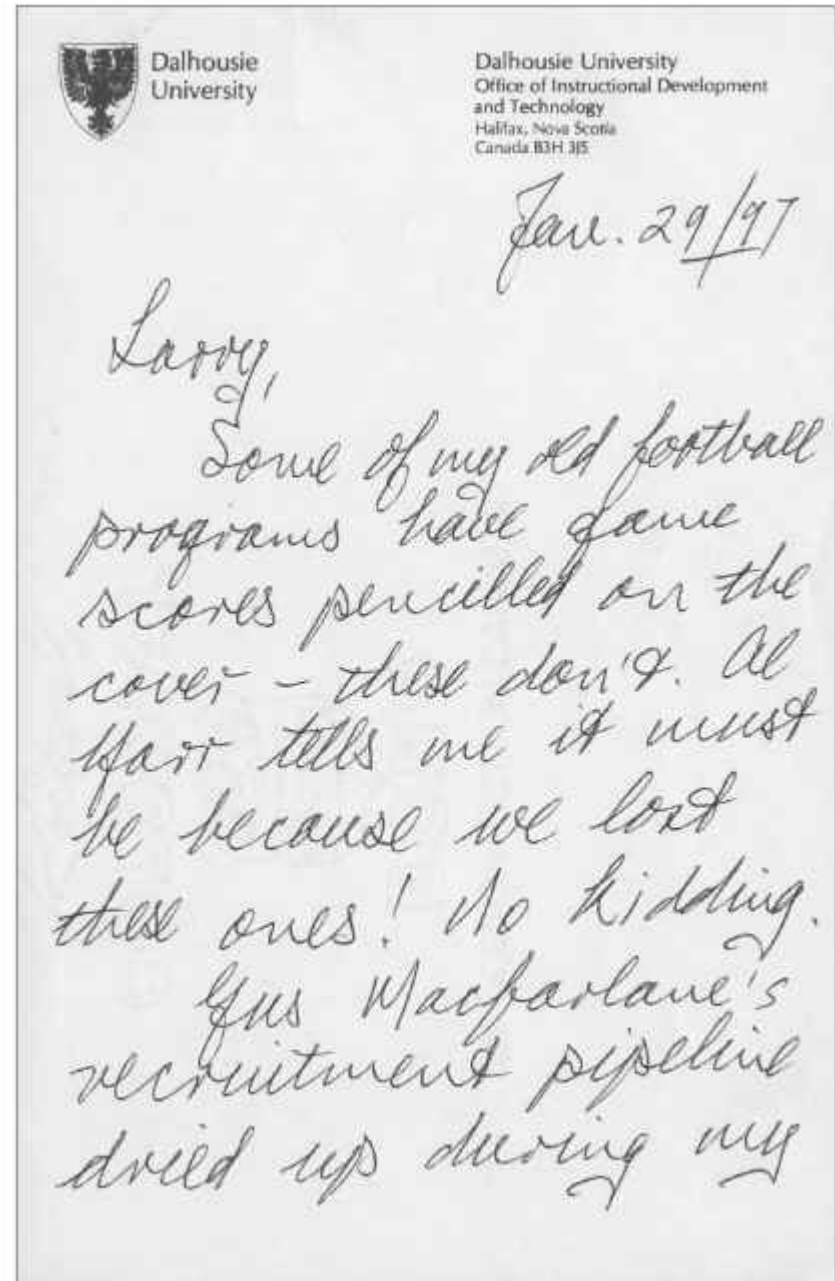 Dalhousie
University
Dalhousie University
Office of Instructional Development
and Technology
Halifax, Nova Scotia
Canada B3H 3J5
Jan. 29/97
Larry,
Some of my old football
programs have game
scores pencilled on the
cover – these don't. Al
Harr tells me it must
be because we lost
these ones! No kidding.
Gus Macfarlane's
recruitment pipeline
dried up during my